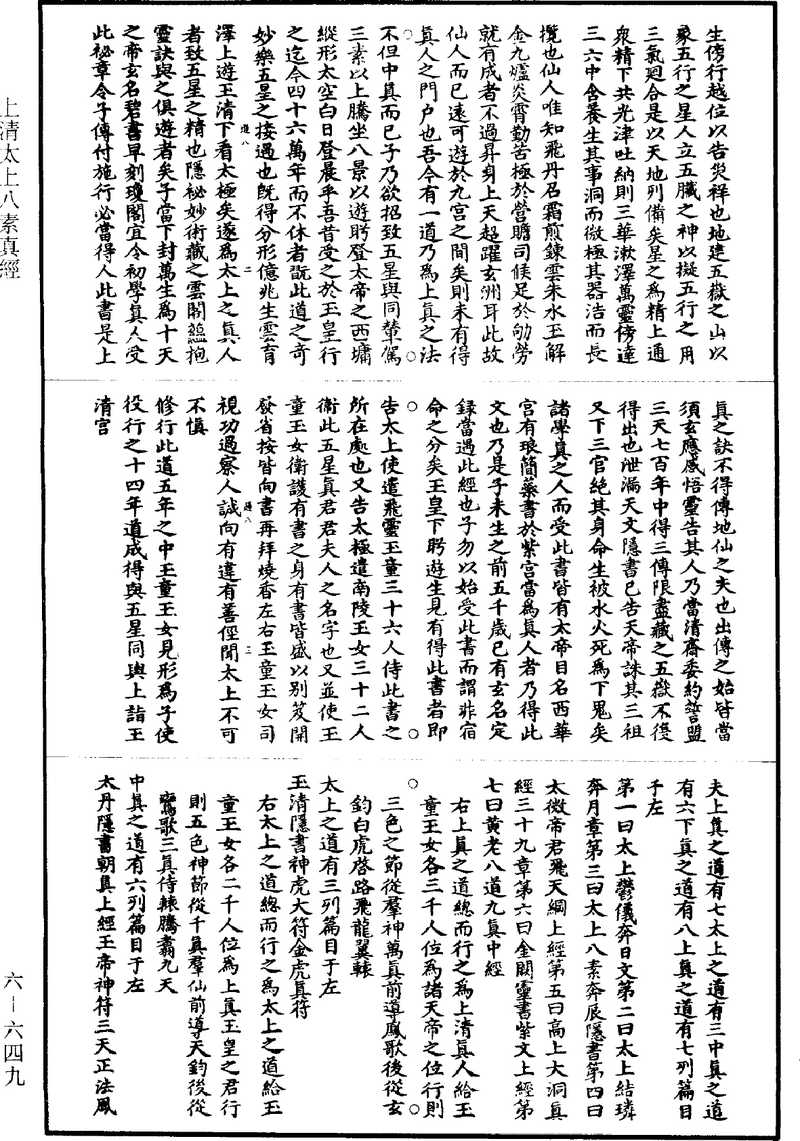 上清太上八素真經
六－六四九
生傍行越位以告災祥也地建五嶽之山以
象五行之星人立五臟之神以擬五行之用
三氣迴合是以天地列備矣星之為精上通
衆精下共光津吐納則三華漱澤萬靈傍達
三六中含養生其事洞而微極其器浩而長
攬也仙人唯知飛丹召霜煎鍊雲朱水玉解
金九爐炎霄勤苦極於營贍司候足於劬勞
就有成者不過昇身上天超躍玄洲耳此故
仙人而已速可遊於九宮之間矣則未有得
真人之門户也吾今有一道乃為上真之法
不但中真而已子乃欲招致五星與同輦駕
三素以上騰坐八景以遊眄登太帝之西墉
縱形太空白日登晨乎吾昔受之於玉皇行
之迄今四十六萬年而不休者翫此道之奇
妙樂五星之接遇也既得分形億兆生雲育
道八　二
澤上遊玉清下看太極矣遂為太上之真人
者致五星之精也隱秘妙術藏之雲閣蘊抱
靈訣與之俱遊者矣子當下封萬生為十天
之帝玄名碧書早刻瓊閣宜令初學真人受
此祕章令子傳付施行必當得人此書是上
真之訣不得傳地仙之夫也出傳之始皆當
須玄應感悟靈告其人乃當清齋委約誓盟
三天七百年中得三傳限盡藏之五嶽不復
得出也泄漏天文隱書已告天帝誅其三祖
又下三官絕其身命生被水火死為下鬼矣
諸學真之人而受此書皆有太帝目名西華
宮有琅簡蘂書於紫宮當為真人者乃得此
文也乃是子未生之前五千歲已有玄名定
録當遇此經也子勿以始受此書而謂非宿
命之分矣玉皇下眄遊生見有得此書者即
告太上使遣飛靈玉童三十六人侍此書之
所在處也又告太極遣南陵玉女三十二人
衛此五星真君君夫人之名字也又並使玉
童玉女衛護有書之身有書皆盛以別笈開
發省按皆向書再拜燒香左右玉童玉女司
道八　三
視功過察人誠向有違有善徑聞太上不可
不慎
修行此道五年之中玉童玉女見形為子使
役行之十四年道成得與五星同輿上詣玉
清宮
夫上真之道有七太上之道有三中真之道
有六下真之道有八上真之道有七列篇目
于左
第一曰太上鬱儀奔日文第二曰太上結璘
奔月章第三曰太上八素奔辰隱書第四曰
太微帝君飛天綱上經第五曰高上大洞真
經三十九章第六曰金闕靈書紫文上經第
七曰黃老八道九真中經
右上真之道總而行之為上清真人給玉
童玉女各三千人位為諸天帝之位行則
三色之節從羣神萬真前導鳳歌後從玄
鈞白虎啓路飛龍翼轅
太上之道有三列篇目于左
玉清隱書神虎大符金虎真符
右太上之道總而行之為太上之道給玉
童玉女各二千人位為上真玉皇之君行
則五色神節從千真羣仙前導天鈞後從
鸞歌三真侍轅騰翥九天
中真之道有六列篇目于左
太丹隱書朝真上經玉帝神符三天正法鳳